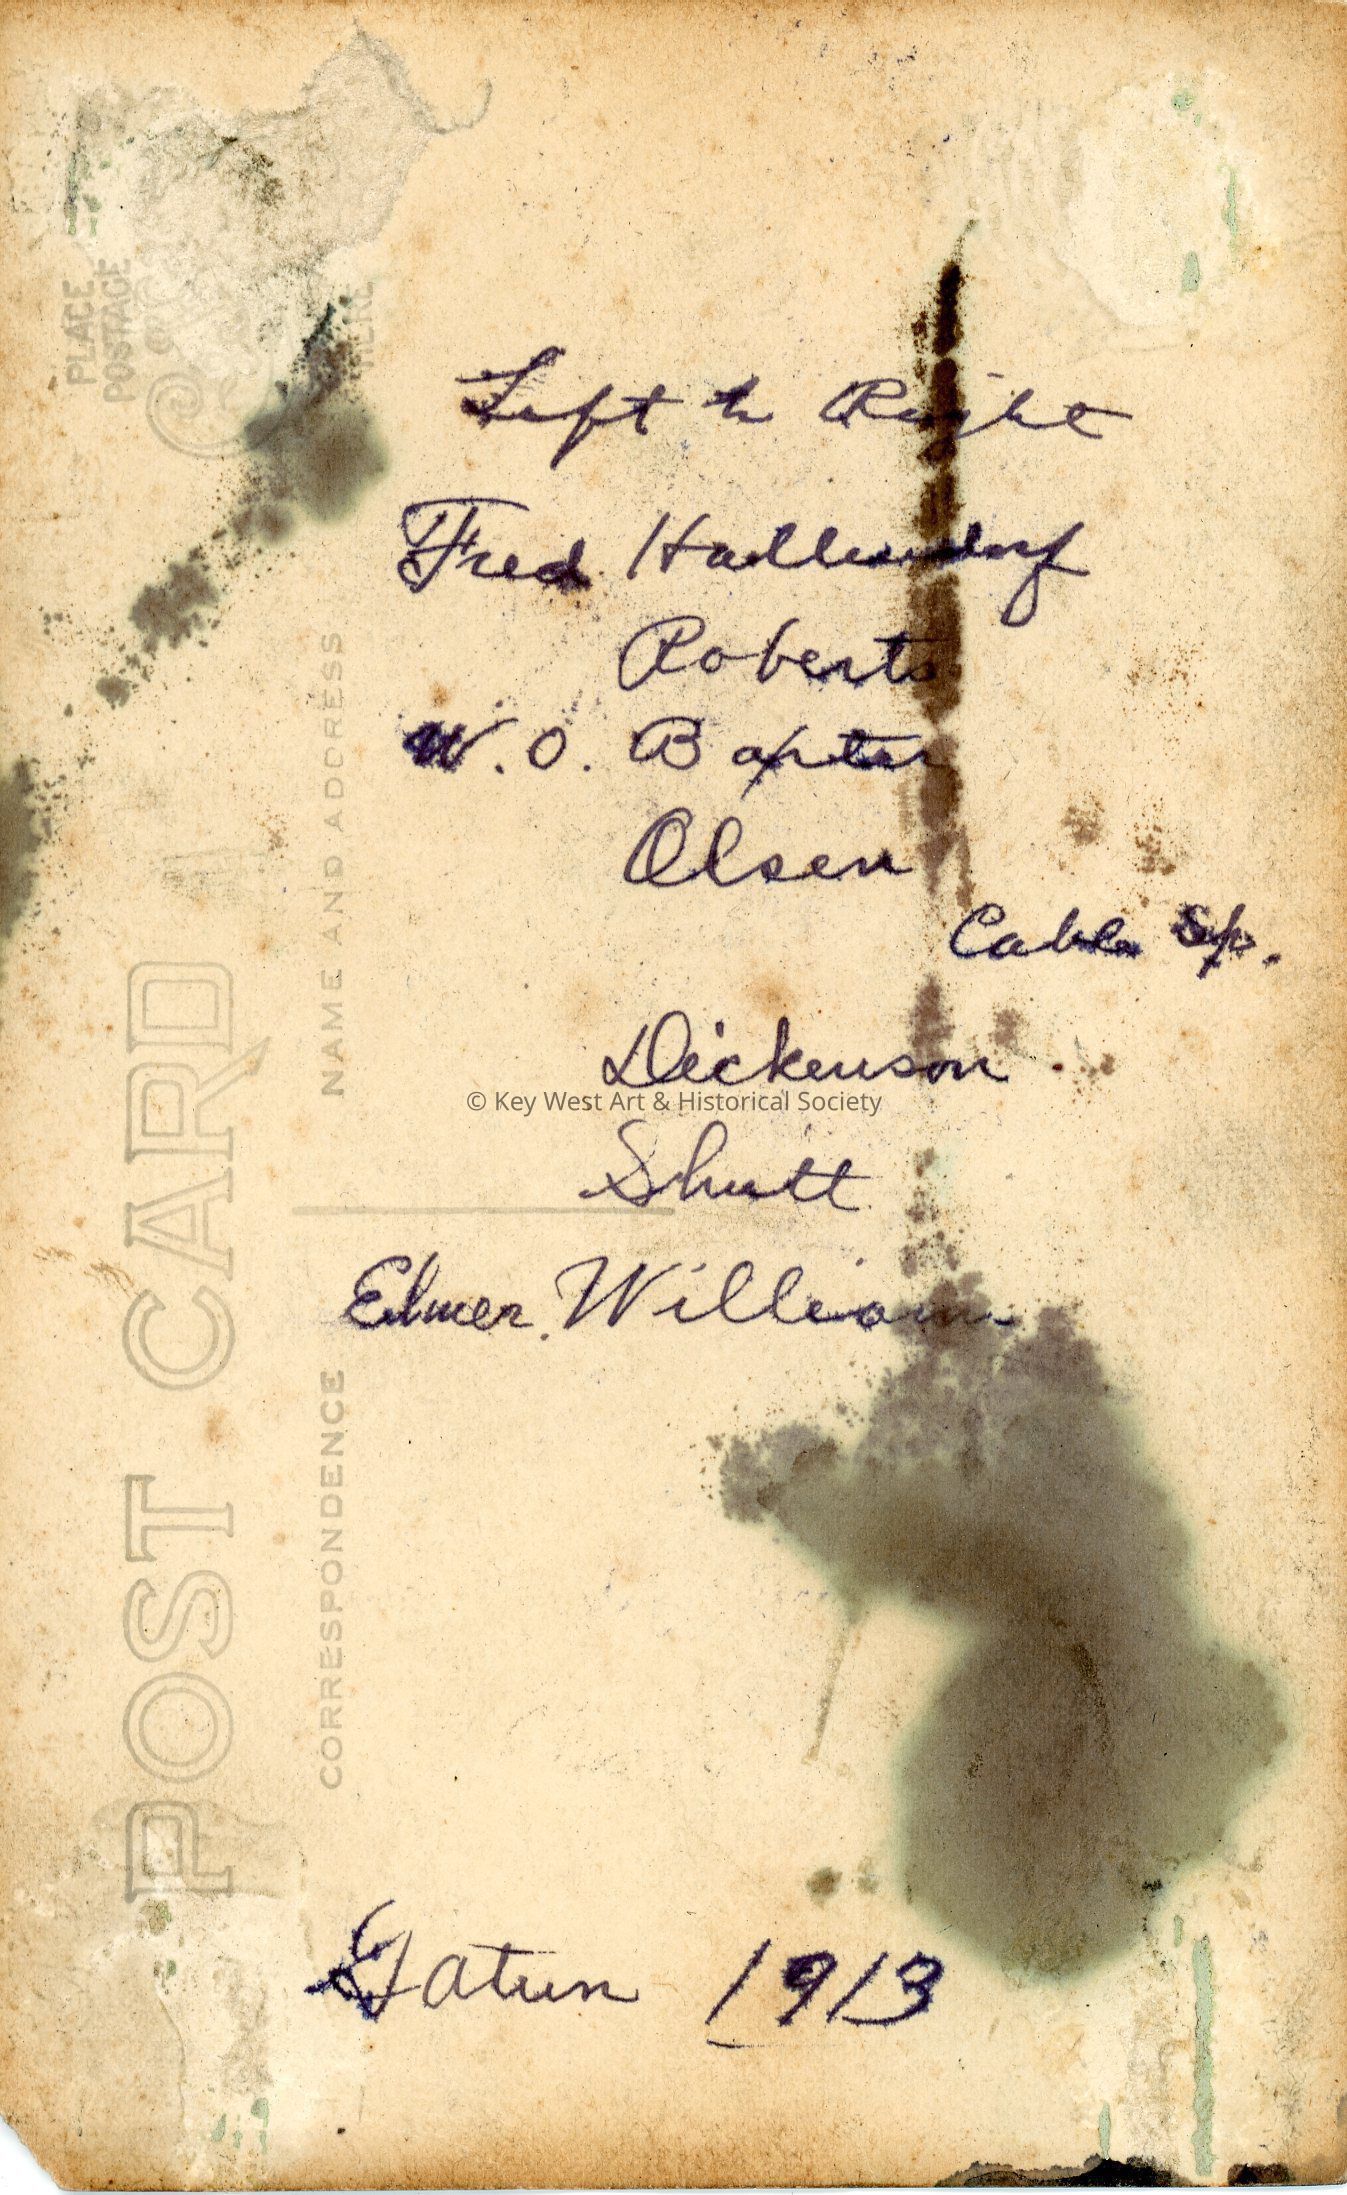 Left to Right
Fred Hallendorf
Roberts
W. O. Baxter
Olsen
Cable Sp.
Dickenson
© Key West Art & Historical Society
Shutt
Elmer Williams
Gatun 1913
PLACE
POSTAGE
HERE
POST CARD
NAME AND ADDRESS
CORRESPONDENCE